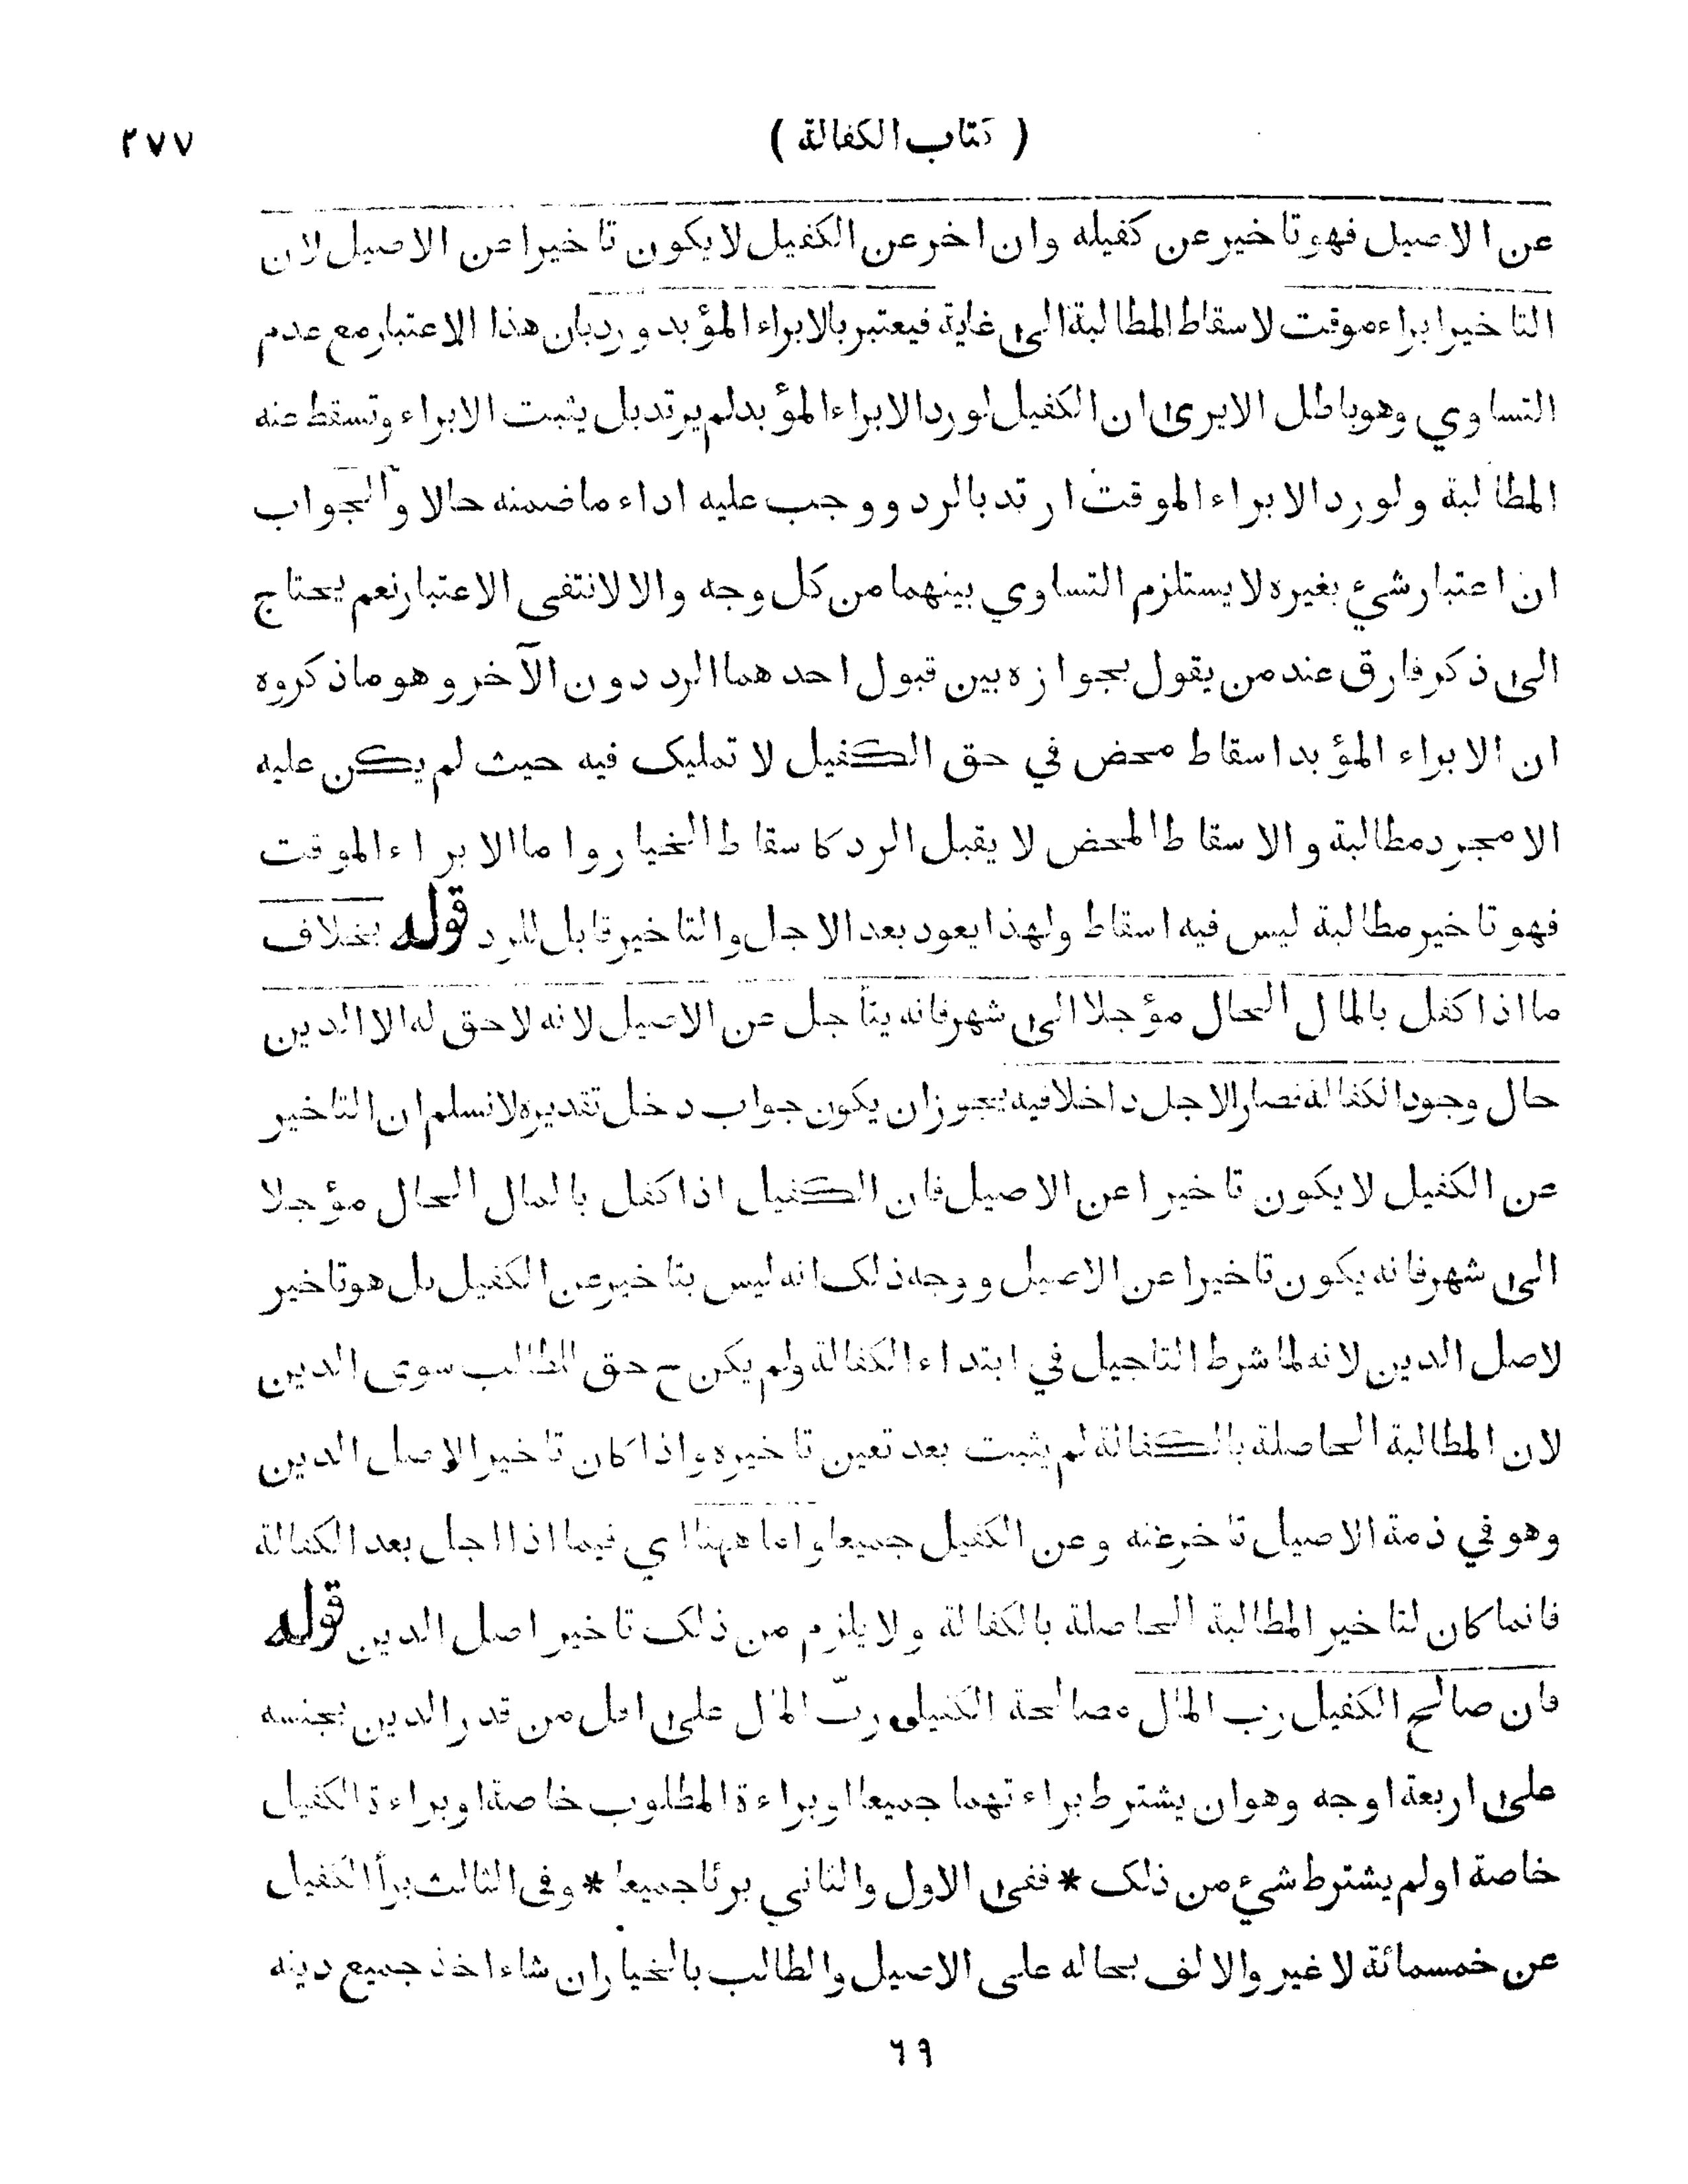 ( كتاب الكفالة ) ٢٧٧
عن الاصيل فهو تاخير عن كفيله وان اخر عن الكفيل لا يكون تا خيرا عن الاصيل لان
التا خيرا براء موقت لا سقاط المطا لبة الى غاية فيعتبر بالا براء المؤ بد و رد بان هذا الاعتبار مع عدم
التسا وي وهو باطل الا يرى ان الكفيل لو رد الا براء المؤ بد لم يرتد بل يثبت الا براء وتسقط عنه
المطا لبة ولو رد الا براء الموقت ا ر تد بالرد و وجب عليه اداء ما ضمنه حالا والجواب
ان اعتبار شيء بغيره لا يستلزم التسا وي بينهما من كل وجه والا لانتفى الاعتبار نعم يحتاج
الى ذكر فارق عند من يقول بجوا زه بين قبول احد هما الرد دون الآخر و هو ماذ كروه
ان الا براء المؤ بد اسقاط محض في حق الكفيل لا تمليك فيه حيث لم يكن عليه
الا مجرد مطالبة والا سقا ط المحض لا يقبل الرد كا سقا ط الخيار وا ما الا براء الموقت
فهو تا خير مطا لبة ليس فيه اسقاط ولهذا يعود بعد الا جل والتا خير قا بل للرد قوله بخلاف
ما اذا كفل بالما ل الحال مؤجلا الى شهر فانه يتأ جل عن الاصيل لانه لا حق له الا الدين
حال وجود الكفا لة فصار الاجل داخلا فيه يجوز ان يكون جواب دخل تقديره لا نسلم ان التاخير
عن الكفيل لا يكون تا خيرا عن الا صيل فان الكفيل اذا كفل بالمال الحال مؤجلا
الى شهر فا نه يكون تا خيرا عن الاصيل و وجه ذلك انه ليس بتا خير عن الكفيل بل هو تاخير
لاصل الدين لا نه لما شرط التاجيل في ابتداء الكفالة ولم يكن ح حق للطالب سوى الدين
لان المطالبة الحاصلة بالكفالة لم يثبت بعد تعين تا خيره واذا كان تا خيرا لاصل الدين
وهو في ذمة الاصيل تا خر عنه وعن الكفيل جميعا واما ههنا اي فيما اذا اجل بعد الكفالة
فانما كان لتا خير المطالبة الحاصلة بالكفالة ولا يلزم من ذلك تا خير اصل الدين قوله
فان صالح الكفيل رب المال مصالحة الكفيل رب المال على اقل من قدر الدين بجنسه
على اربعة اوجه وهو ان يشترط براء تهما جميعا او براءة المطلوب خاصة او براءة الكفيل
خاصة اولم يشترط شيء من ذلك * ففى الاول والثاني برئا جميعا * وفى الثالث برأ الكفيل
عن خمسمائة لا غير والا لف بحاله على الاصيل والطالب بالخيار ان شاء اخذ جميع دينه
٦٩